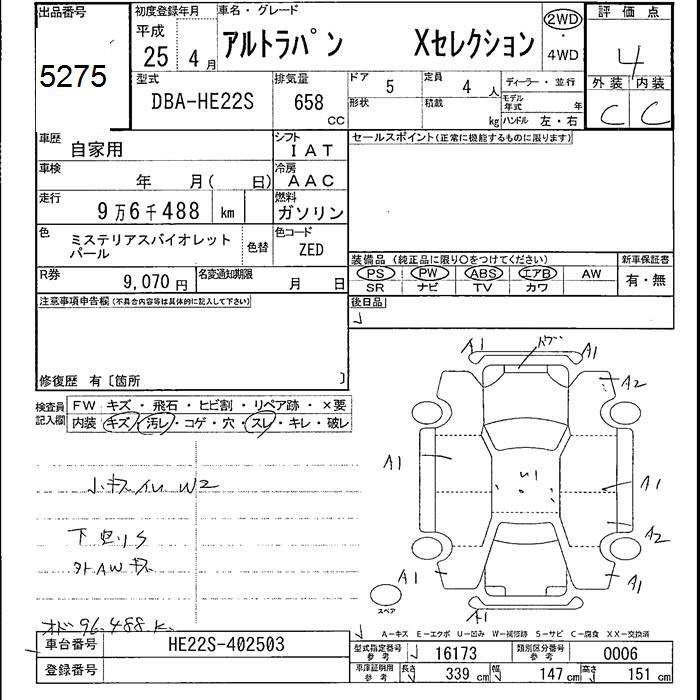 出品番号
5275
初度登録年月
平成
25 4月
車名・グレード
アルトラパン Xセレクション
2WD
・
4WD
評価点
4
型式
DBA-HE22S
排気量
658
CC
ドア
5
定員
4 人
形状
積載
kg
ディーラー・並行
モデル年式 年
ハンドル 左・右
外装 内装
C C
車歴
自家用
シフト
IAT
セールスポイント(正常に機能するものに限ります)
車検
年 月( 日)
冷房
AAC
走行
9万6千488 km
燃料
ガソリン
色
ミステリアスバイオレット
パール
色替
色コード
ZED
装備品 (純正品に限り○をつけてください)
PS PW ABS エアB AW
SR ナビ TV カワ
新車保証書
有・無
R券
9,070円
名変通知期限
月 日
後日品
注意事項申告欄(不具合内容等は具体的に記入して下さい)
修復歴 有〔箇所 〕
検査員
記入欄
FW キズ・飛石・ヒビ割・リペア跡・×要
内装 キズ・汚レ・コゲ・穴・スレ・キレ・破レ
W2
S
AW
96,488
A1 A1
A2
A1 A1
A2
A1 A1
A1
スペア
A-キズ E-エクボ U-凹み W-補修跡 S-サビ C-腐食 XX-交換済
車台番号 HE22S-402503
登録番号
型式指定番号
参考
16173
類別区分番号
参考
0006
車庫証明用
参考
長さ 339 cm 幅 147 cm 高さ 151 cm